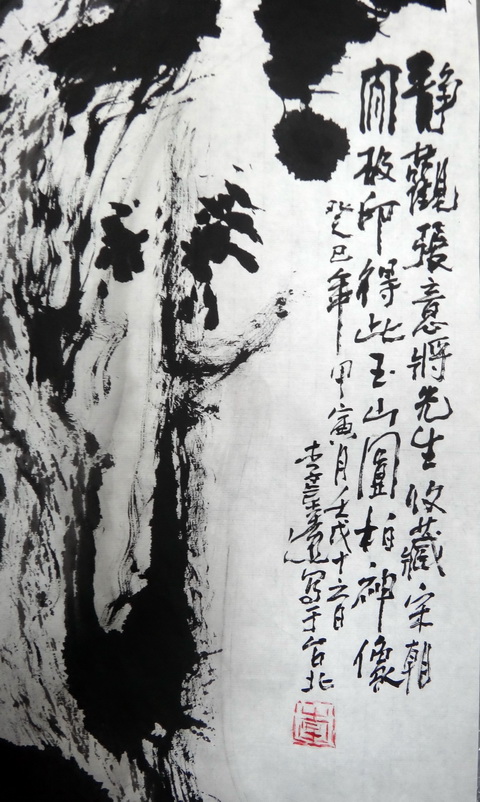 靜觀張意將先生收藏宋朝
印得此玉山圓柏神像
癸巳年甲寅月壬戌十六日
李 寫于台北